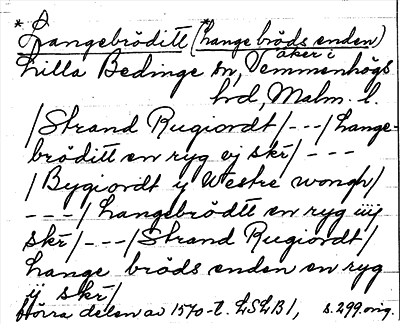 *Langebröditt (*hange bröds enden)
åker i
Lilla Bedinge sn, Vemmenhögs
hd, Malm. l.
/Strand Rugiordt/ --- /hange-
bröditt en ryg ij skr/ ---
/Bygiordt y Westre wongh/
--- / hangebrödtt en ryg iiij
skr/ --- /Strand Rugiordt/
hange bröds enden en ryg
ij skr/
förra delen av 1570-t. LSLB1, s. 299. orig.